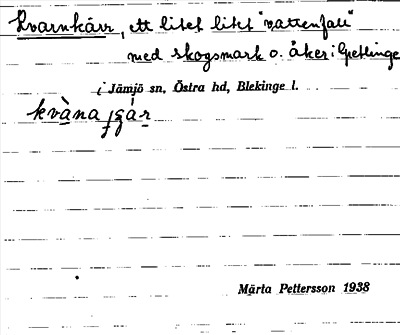 Kvarnkärr, ett litet litet "vattenfall"
med skogsmark o. åker i Getlinge
i Jämjö sn, Östra hd, Blekinge l.
kvànaʝɕár
Märta Pettersson 1938